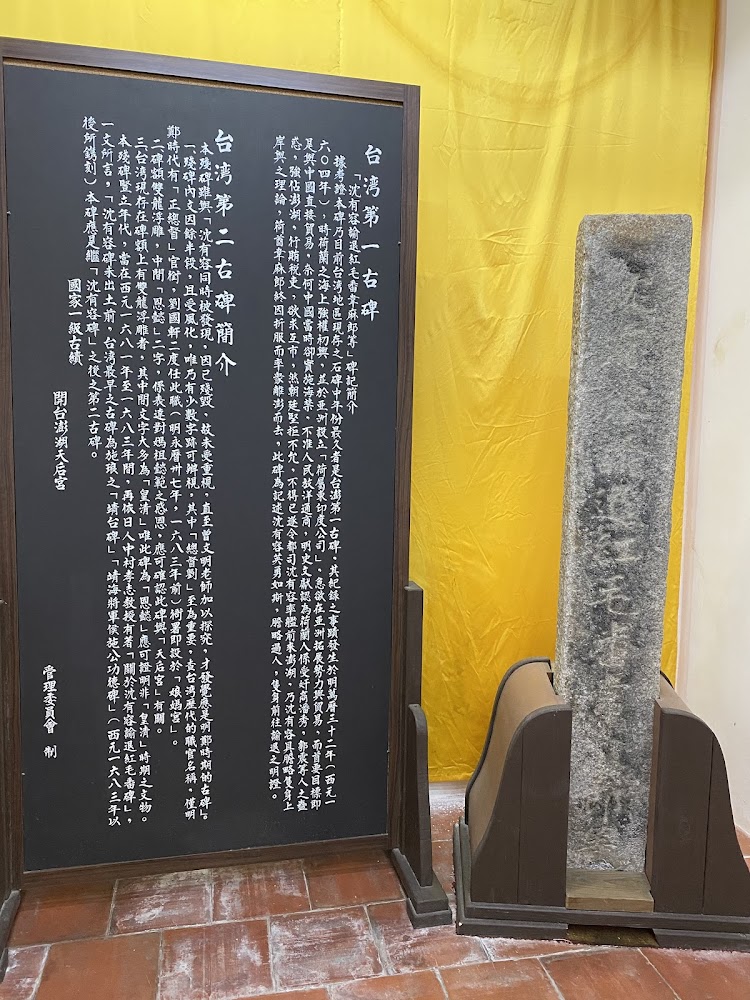 台湾第一古碑
「沈有容諭退紅毛番韋麻郎等」碑記簡介
據考證本碑乃目前台湾地區現存之石碑中年份最久者是台澎第一古碑,其紀錄之事蹟發生於明萬曆三十二年(西元一
六〇四年),時荷蘭之海上強權初興,並於亞洲設立「荷屬東印度公司」,急欲在亞洲拓展勢力與貿易,而首要目標即
是與中國直接貿易,奈何中國當時卻實施海禁,不准人民放洋通商,明史文獻認為荷蘭人係受奸商潘秀,郭震等人之蠱
惑,強佔澎湖,行賄稅吏,欲求互市,然朝廷堅拒不允,不得已遂令都司沈有容率艦前來澎湖,乃沈有容具膽略隻身上
岸與之理論,荷酋韋麻郎終因折服而率眾離澎而去,此碑為記述沈有容英勇如斯,膽略過人,隻身前往諭退之明證。
台湾第二古碑簡介
本殘碑雖與「沈有容同時被發現,因已殘毀,故未受重視,直至曾文明老師加以探究,才發覺應是明鄭時期的古碑」。
一、殘碑內文因餘半段,且受風化,唯乃有少數字跡可辨視,其中「總督劉」至為重要,查台湾歷代的職官名稱,僅明
鄭時代有「正總督」官銜,劉國軒二度任此職(明永曆卅七年,一六八三年前)衙署即設於「娘媽宮」。
二碑額雙龍浮雕,中間「恩懿」二字,係表達對媽祖懿範之感恩,應可確認此碑與「天后宮」有關。
三台湾現存在碑額上有雙龍浮雕者,其中間文字大多為「皇清」唯此碑為「恩懿」應可證明非「皇清」時期之文物。
本殘碑豎立年代,當在西元一六八一年至一六八三年間,再依日人中村孝志教授有著「關於沈有容諭退紅毛番碑」,
一文所言,「沈有容碑未出土前,台湾最早之古碑為施琅之「靖台碑」「靖海將軍侯施公功德碑」(西元一六八三年以
後所鐫刻)本碑應是繼「沈有容碑」之後之第二古碑。
國家一級古蹟
開台澎湖天后宮
管理委員會 制
沈有容諭退紅毛番韋麻郎等